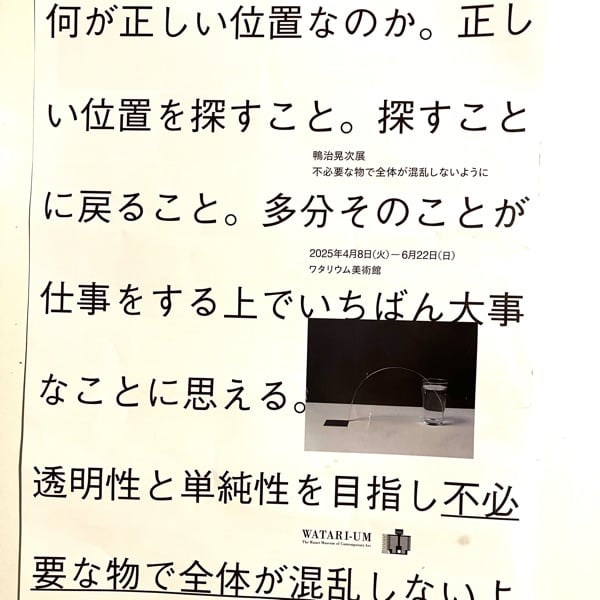 何が正しい位置なのか。正し
い位置を探すこと。探すこと
鴨治晃次展
不必要な物で全体が混乱しないように
に戻ること。多分そのことが
2025年4月8日(火)－6月22日(日)
ワタリウム美術館
仕事をする上でいちばん大事
なことに思える。
透明性と単純性を目指し不必
WATARI-UM
The Watari Museum of Contemporary Art
要な物で全体が混乱しないよ